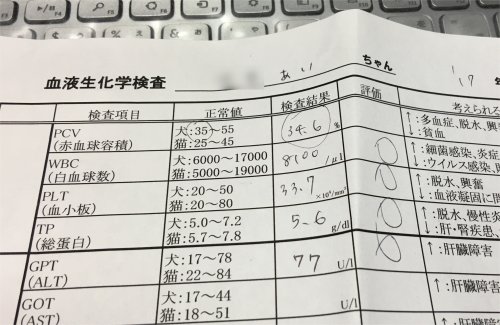 血液生化学検査 あい ちゃん '17 年
検査項目 正常値 検査結果 評価 考えられる
PCV 犬:35~55 34.6 % ↑:多血症、脱水、興
(赤血球容積) 猫:25~45 ↓:貧血
WBC 犬:6000~17000 8100 /μl ↑:細菌感染、炎症
(白血球数) 猫:5000~19000 ↓:ウイルス感染、
PLT 犬:20~50 33.7 ×10⁴/mm³ ↑:脱水、興奮
(血小板) 猫:20~80 ↓:血液凝固に問
TP 犬:5.0~7.2 5.6 g/dl ↑:脱水、慢性炎
(総蛋白) 猫:5.7~7.8 ↓:肝・腎疾患、
GPT 犬:17~78 77 U/l ↑:肝臓障害
(ALT) 猫:22~84
GOT 犬:17~44 U/l ↑:肝臓障害
(AST) 猫:18~51